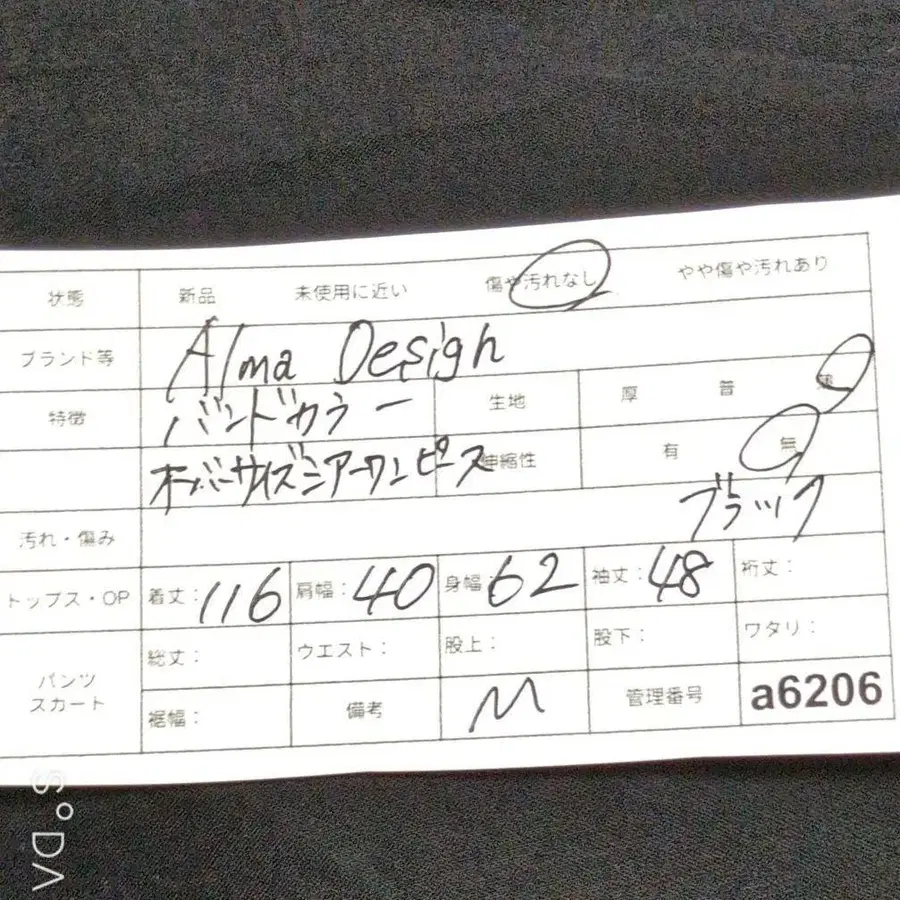 状態 新品 未使用に近い 傷や汚れなし やや傷や汚れあり
ブランド等 Alma Design
特徴 バンドカラー 生地 厚 普 薄
オーバーサイズシアーワンピース 伸縮性 有 無
汚れ・傷み ブラック
トップス・OP 着丈: 116 肩幅: 40 身幅: 62 袖丈: 48 裄丈:
パンツ スカート 総丈: ウエスト: 股上: 股下: ワタリ:
裾幅: 備考 M 管理番号 a6206